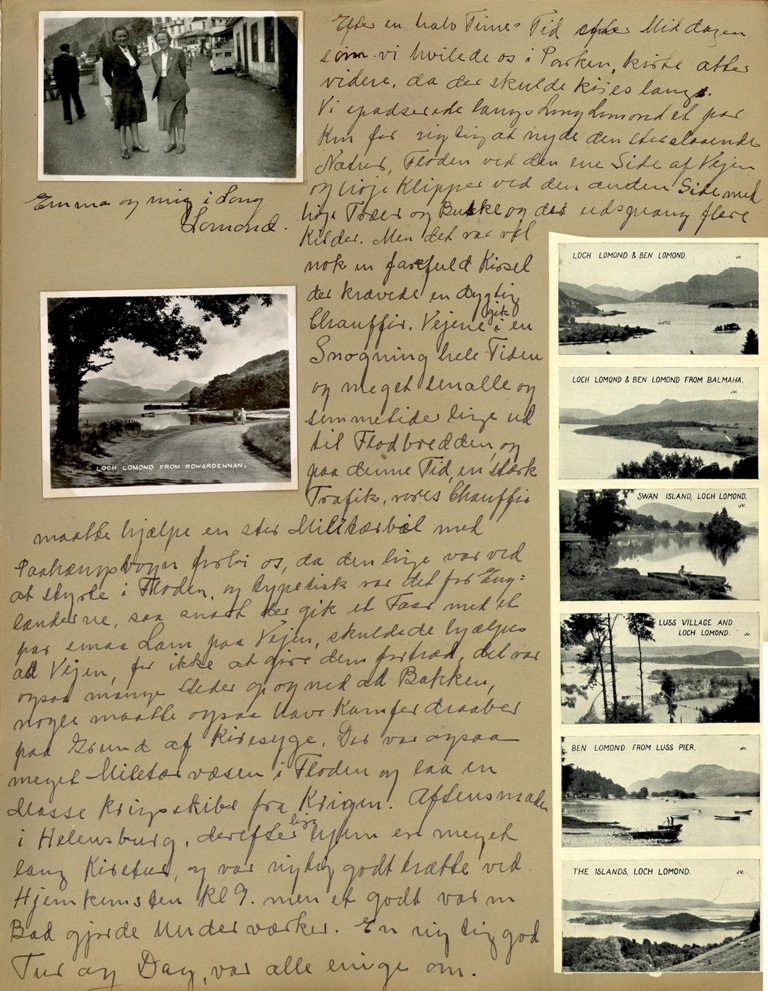 Efter en halv Times Tid efter Middagen
som vi hvilede os i Parken, kirte atter
videre, da der skulde kires langs.
Vi spadserede langs Long Lomond et par
Km for rigtig at nyde den storslaaende
Natur, Floden ved den ene Side af Vejen
og høje Klipper ved den anden Side med
høje Træer og Buske og der udsprang flere
Kilder. Men det var vel
nok en farefuld Kirsel
der krævede en dygtig
Chauffir. Vejene gik i en
Snogning hele Tiden
og meget smalle og
sommetider lige ud
til Flodbredden, og
paa denne Tid en stærk
Trafik, vores Chauffir
maatte hjælpe en stor Militærbil med
Paahængsvogn forbi os, da den lige var ved
at styrte i Floden, og typetisk var det for Eng-
lænderne, saa snart der gik et Faar med et
par smaa Lam paa Vejen, skuldede hjælpes
af Vejen, for ikke at gøre dem fortræd, det var
ogsaa mange Steder op og ned ad Bakken,
nogle maatte ogsaa have Kamferdraaber
paa Grund af Kiresyge. Der var ogsaa
meget Militær væsen i Floden og laa en
Masse krigsskibe fra Krigen. Aftensmaden
i Helensburg, derefter lige hjem en meget
lang Kiretur, og var rigtig godt trætte ved
Hjemkomsten Kl 9. men et godt varm
Bad gjorde Underværker. En rigtig god
Tur og Dag, var alle enige om.
Emma og mig i Long
Lomond.
LOCH LOMOND FROM ROWARDENNAN.
LOCH LOMOND & BEN LOMOND
LOCH LOMOND & BEN LOMOND FROM BALMAHA.
SWAN ISLAND, LOCH LOMOND.
LUSS VILLAGE AND
LOCH LOMOND.
BEN LOMOND FROM LUSS PIER.
THE ISLANDS, LOCH LOMOND.